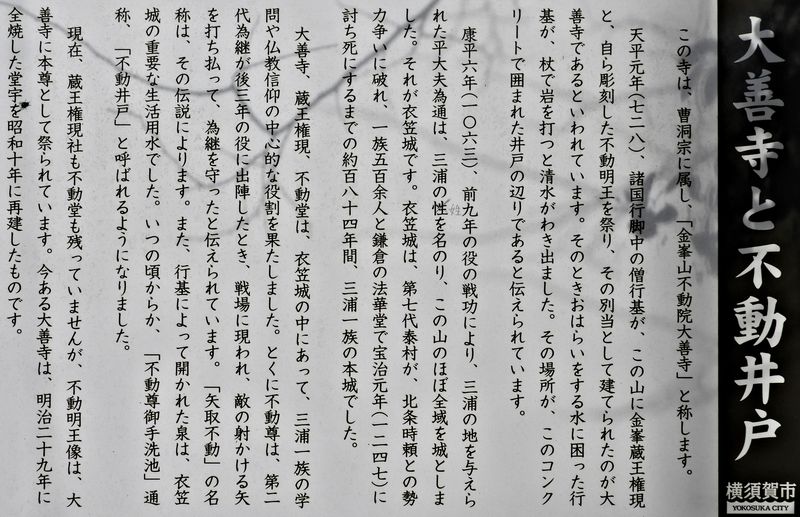 大善寺と不動井戸
この寺は、曹洞宗に属し、「金峯山不動院大善寺」と称します。
天平元年(七二八)、諸国行脚中の僧行基が、この山に金峯蔵王権現
と、自ら彫刻した不動明王を祭り、その別当として建てられたのが大
善寺であるといわれています。そのときおはらいをする水に困った行
基が、杖で岩を打つと清水がわき出ました。その場所が、このコンク
リートで囲まれた井戸の辺りであると伝えられています。
康平六年(一〇六三)、前九年の役の戦功により、三浦の地を与えら
れた平大夫為通は、三浦の性を名のり、この山のほぼ全域を城としま
姓
した。それが衣笠城です。衣笠城は、第七代泰村が、北条時頼との勢
力争いに破れ、一族五百余人と鎌倉の法華堂で宝治元年(一二四七)に
討ち死にするまでの約百八十四年間、三浦一族の本城でした。
大善寺、蔵王権現、不動堂は、衣笠城の中にあって、三浦一族の学
問や仏教信仰の中心的な役割を果たしました。とくに不動尊は、第二
代為継が後三年の役に出陣したとき、戦場に現われ、敵の射かける矢
を打ち払って、為継を守ったと伝えられています。「矢取不動」の名
称は、その伝説によります。また、行基によって開かれた泉は、衣笠
城の重要な生活用水でした。いつの頃からか、「不動尊御手洗池」通
称、「不動井戸」と呼ばれるようになりました。
現在、蔵王権現社も不動堂も残っていませんが、不動明王像は、大
善寺に本尊として祭られています。今ある大善寺は、明治二十九年に
全焼した堂宇を昭和十年に再建したものです。
横須賀市
YOKOSUKA CITY